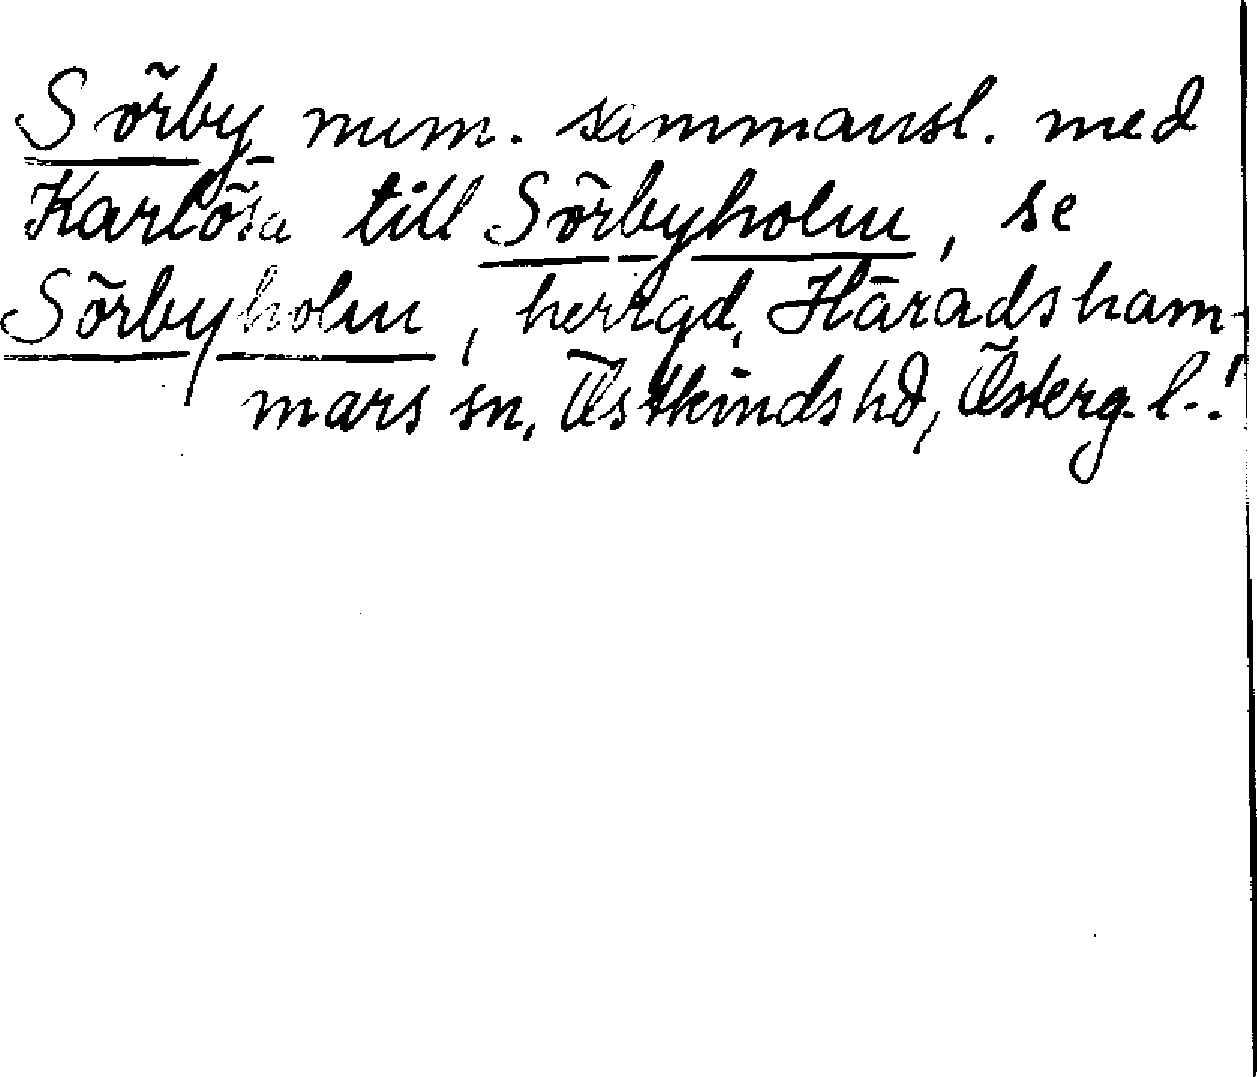 Sörby num. sammansl. med
Karlösa till Sörbyholm, se
Sörbyholm, herrgd, Häradsham-
mars sn, Östkinds hd, Österg. l.!